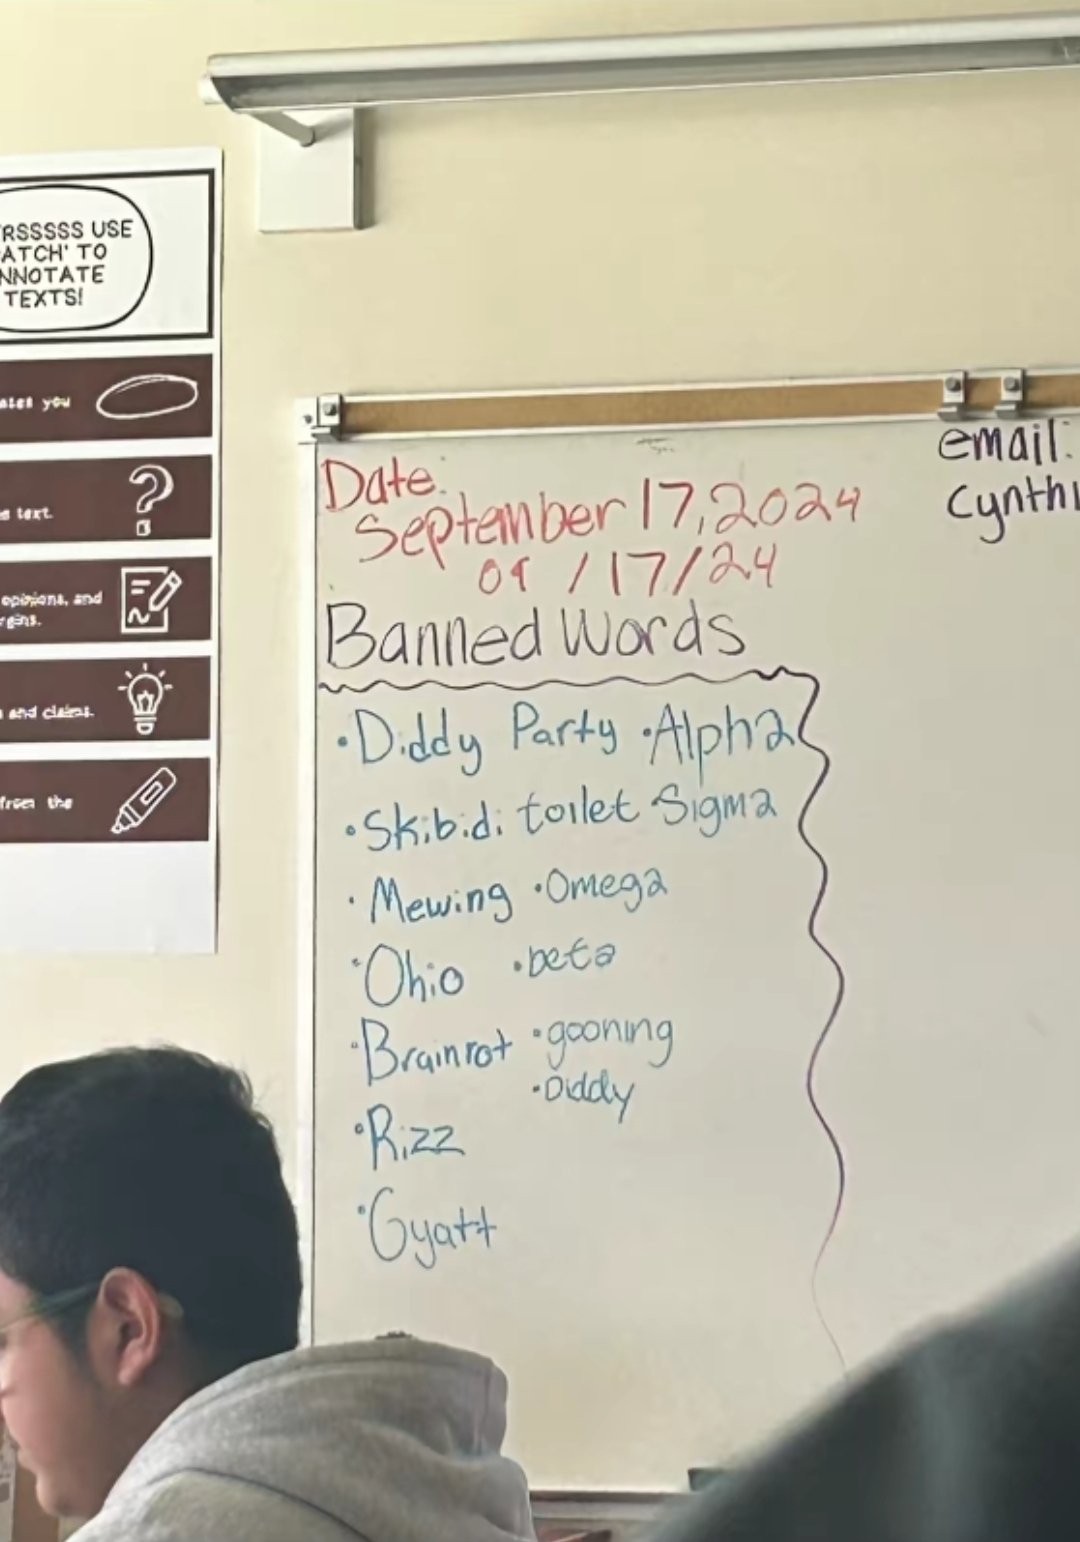 USE
TO
TEXTS!
you
text.
opinions, and
and claims.
from the
Date:
September 17, 2024
09/17/24
Banned Words
•Diddy Party •Alpha
•Skibidi toilet •Sigma
•Mewing •Omega
•Ohio •beta
•Brainrot •gooning
•Diddy
•Rizz
•Gyatt
email: